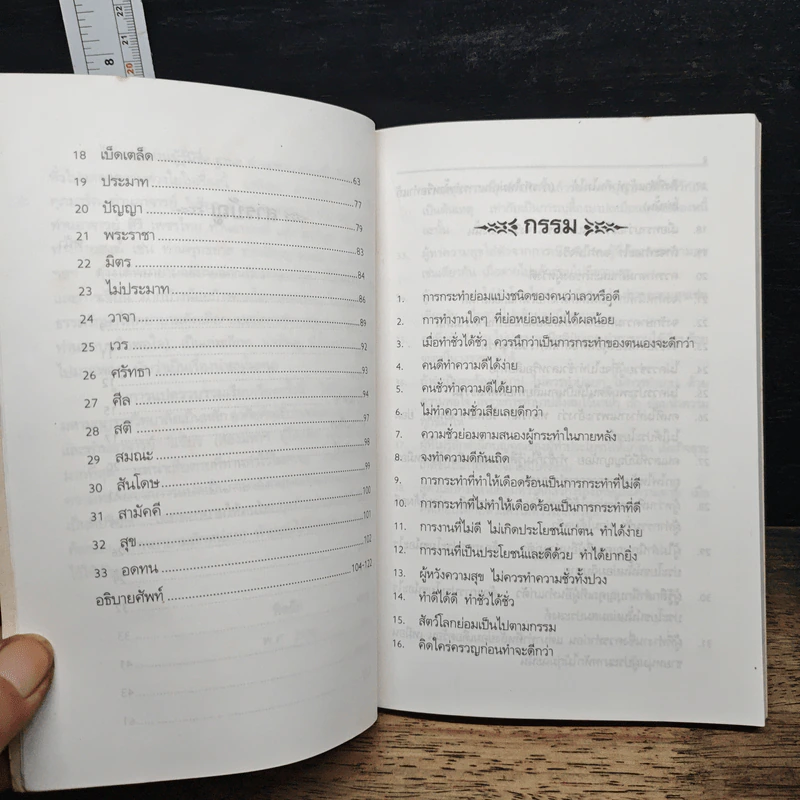 8
22
21
20
18 เบ็ดเตล็ด 63
19 ประมาท 77
20 ปัญญา 79
21 พระราชา 83
22 มิตร 84
23 ไม่ประมาท 86
24 วาจา 89
25 เวร 92
26 ศรัทธา 93
27 ศีล 94
28 สติ 97
29 สมณะ 98
30 สันโดษ 99
31 สามัคคี 100
32 สุข 101
33 อดทน 102
อธิบายศัพท์ 104-122
กรรม
1. การกระทำย่อมแบ่งชนิดของคนว่าเลวหรือดี
2. การทำงานใดๆ ที่ย่อหย่อนย่อมได้ผลน้อย
3. เมื่อทำชั่วได้ชั่ว ควรนึกว่าเป็นการกระทำของตนเองจะดีกว่า
4. คนดีทำความดีได้ง่าย
5. คนชั่วทำความดีได้ยาก
6. ไม่ทำความชั่วเสียเลยดีกว่า
7. ความชั่วย่อมตามสนองผู้กระทำในภายหลัง
8. จงทำความดีกันเถิด
9. การกระทำที่ทำให้เดือดร้อนเป็นการกระทำที่ไม่ดี
10. การกระทำที่ไม่ทำให้เดือดร้อนเป็นการกระทำที่ดี
11. การงานที่ไม่ดี ไม่เกิดประโยชน์แก่ตน ทำได้ง่าย
12. การงานที่เป็นประโยชน์และดีด้วย ทำได้ยากยิ่ง
13. ผู้หวังความสุข ไม่ควรทำความชั่วทั้งปวง
14. ทำดีได้ดี ทำชั่วได้ชั่ว
15. สัตว์โลกย่อมเป็นไปตามกรรม
16. คิดใคร่ครวญก่อนทำจะดีกว่า